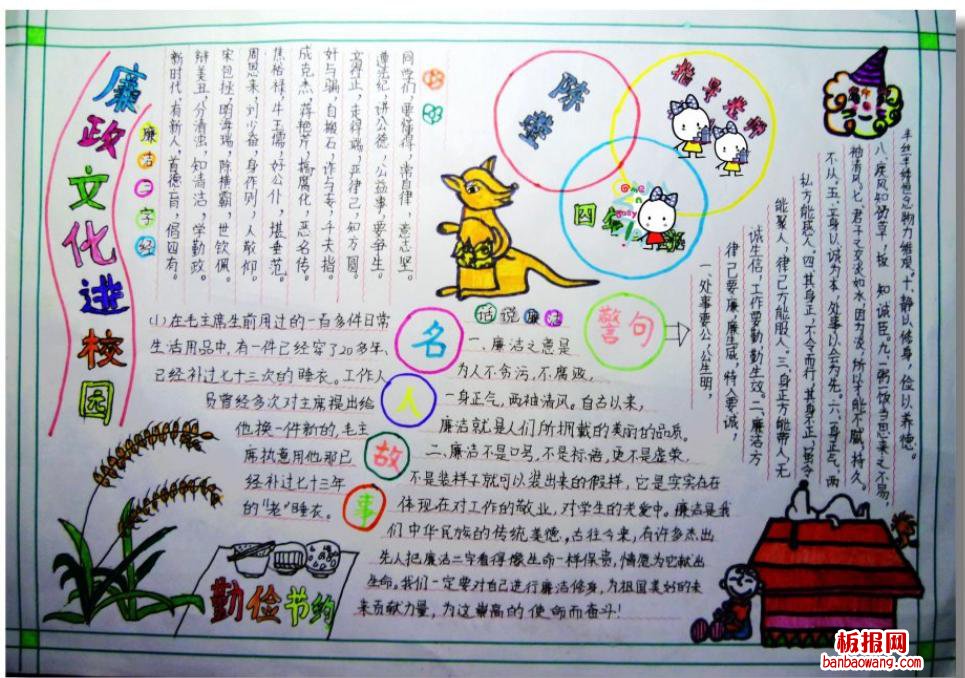 廉政文化进校园
廉洁三字经
同学们,要懂得,常自律,意志坚。
遵法纪,讲公德,公益事,要争先。
好与骗,自搬石,诈与贪,千夫指。
成克杰,蒋艳芹,搞腐化,恶名传。
焦裕禄,牛玉儒,好公仆,堪垂范。
周恩来,刘少奇,身作则,人敬仰。
宋包拯,明海瑞,除横霸,世钦佩。
辩美丑,分清浊,知清洁,学勤政。
新时代,有新人,首德育,倡四有。
陈莹
指导老师
四
名人故事
(1)在毛主席生前用过的一百多件日常
生活用品中,有一件已经穿了20多年、
已经补过七十三次的睡衣。工作人
员曾经多次对主席提出给
他换一件新的,毛主
席执意用他那已
经补过七十三年
的“老”睡衣。
勤俭节约
话说廉洁
一、廉洁之意是
为人不贪污,不腐败,
一身正气,两袖清风。自古以来,
廉洁就是人们所拥戴的美丽的品质。
二、廉洁不是口号,不是标语,更不是虚荣,
不是装样子就可以装出来的假样,它是实实在在
体现在对工作的敬业,对学生的关爱中。廉洁是我
们中华民族的传统美德,古往今来,有许多杰出
先人把廉洁二字看得像生命一样保贵,情愿为它献出
生命。我们一定要对自己进行廉洁修身,为祖国美好的未
来贡献力量,为这崇高的使命而奋斗!
警句
一、处事要公,公生明,
律己要廉,廉生威,待人要诚,
诚生信,工作要勤,勤生效。二、廉洁方
能聚人,律己方能服人。三、身正方能带人,无
私方能感人。四、其身正,不令而行,其身不正,虽令
不从。五、立身以诚为本,处事以公为先。六、一身正气,两
袖清风。七、君子之交淡如水,因为淡,所以才能不腻,持久。
八、疾风知劲草,板荡知诚臣。九、一粥一饭,当思来之不易,
半丝半缕恒念物力维艰。十、静以修身,俭以养德。
板报网
banbaowang.com